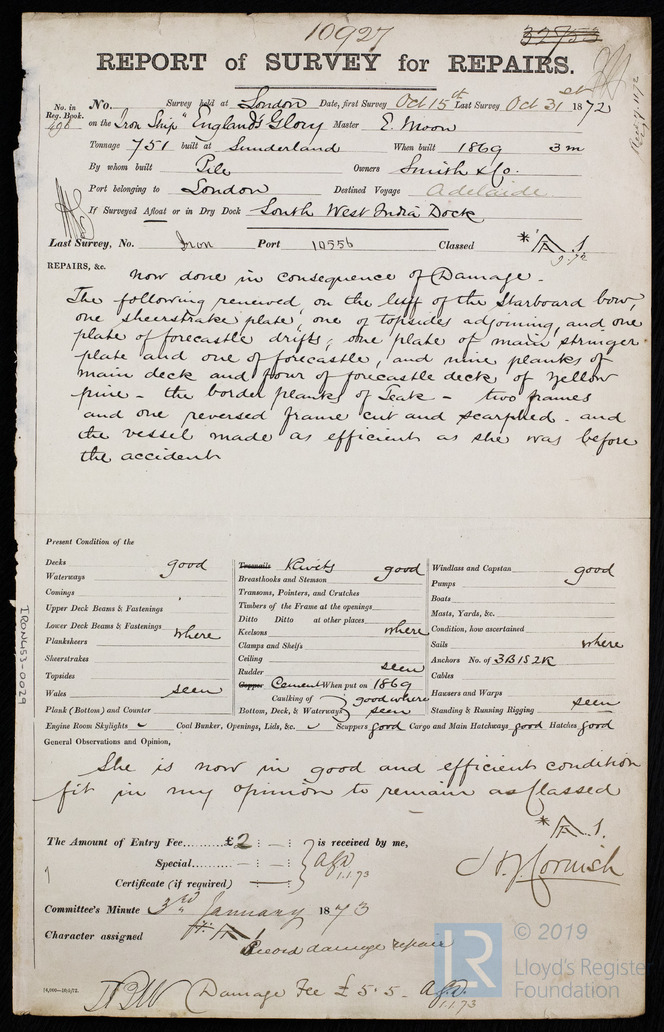 10927
32953
REPORT of SURVEY for REPAIRS.
Rec'd 9.11/72
No. in Reg. Book. No. Survey held at London Date, first Survey Oct 15th Last Survey Oct 31st 1872
496 on the Iron Ship "England's Glory Master E. Moon
Tonnage 751 built at Sunderland When built 1869 3m
By whom built Pile Owners Smith & Co.
Port belonging to London Destined Voyage Adelaide
If Surveyed Afloat or in Dry Dock South West India Dock
Last Survey, No. Iron Port 10556 Classed * A 1
9.72
REPAIRS, &c. now done in consequence of Damage.
The following renewed, on the luff of the starboard bow,
one sheerstrake plate, one of topsides adjoining, and one
plate of forecastle drifts, one plate of main stringer
plate and one of forecastle, and nine planks of
main deck and four of forecastle deck of yellow
pine - the border planks of Teak - two frames
and one reversed frame cut and scarphed. and
the vessel made as efficient as she was before
the accident
Present Condition of the
Decks good Treenails Rivets good Windlass and Capstan good
Waterways Breasthooks and Stemson Pumps
Comings Transoms, Pointers, and Crutches Boats
Upper Deck Beams & Fastenings Timbers of the Frame at the openings Masts, Yards, &c.
Lower Deck Beams & Fastenings where Ditto Ditto at other places Condition, how ascertained
Planksheers Keelsons where Sails where
Sheerstrakes Clamps and Shelfs Anchors No. of 3B1S2K
Topsides Ceiling Cables
Wales seen Rudder seen Hawsers and Warps
Plank (Bottom) and Counter Copper Cement When put on 1869 Standing & Running Rigging seen
Caulking of Bottom, Deck, & Waterways good where seen
Engine Room Skylights Coal Bunker, Openings, Lids, &c. Scuppers good Cargo and Main Hatchways good Hatches good
General Observations and Opinion,
She is now in good and efficient condition
fit in my opinion to remain as Classed
* A 1.
The Amount of Entry Fee £2 : - : is received by me,
Special - : - : 1.1.73
Certificate (if required) : - :
Cornish
Committee's Minute 3rd January 1873
Character assigned A 1
Record damage repair
Damage Fee £5.5 - 1.1.73
IRON453-0029
LR © 2019
Lloyd's Register
Foundation